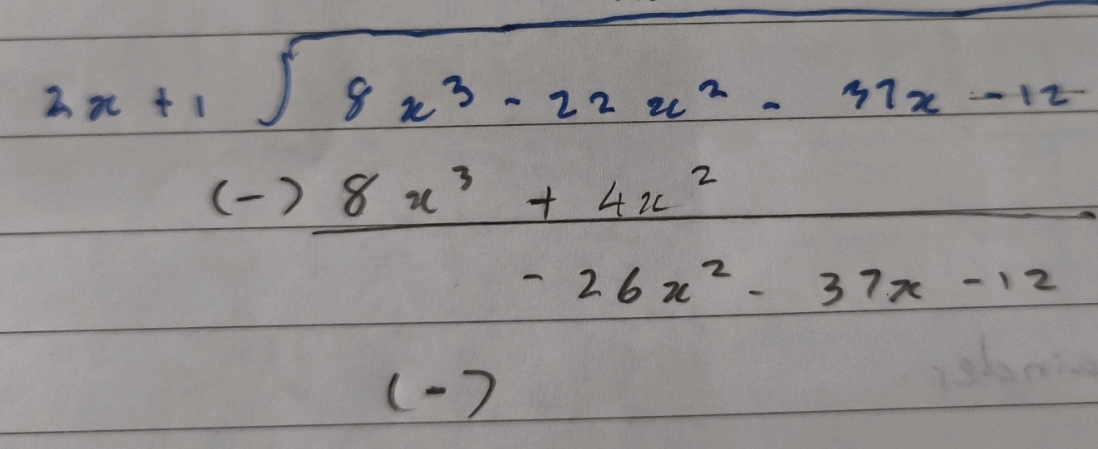 2x + 1 ⟌ 8x³ - 22x² - 37x - 12
(-) 8x³ + 4x²
- 26x² - 37x - 12
(-)